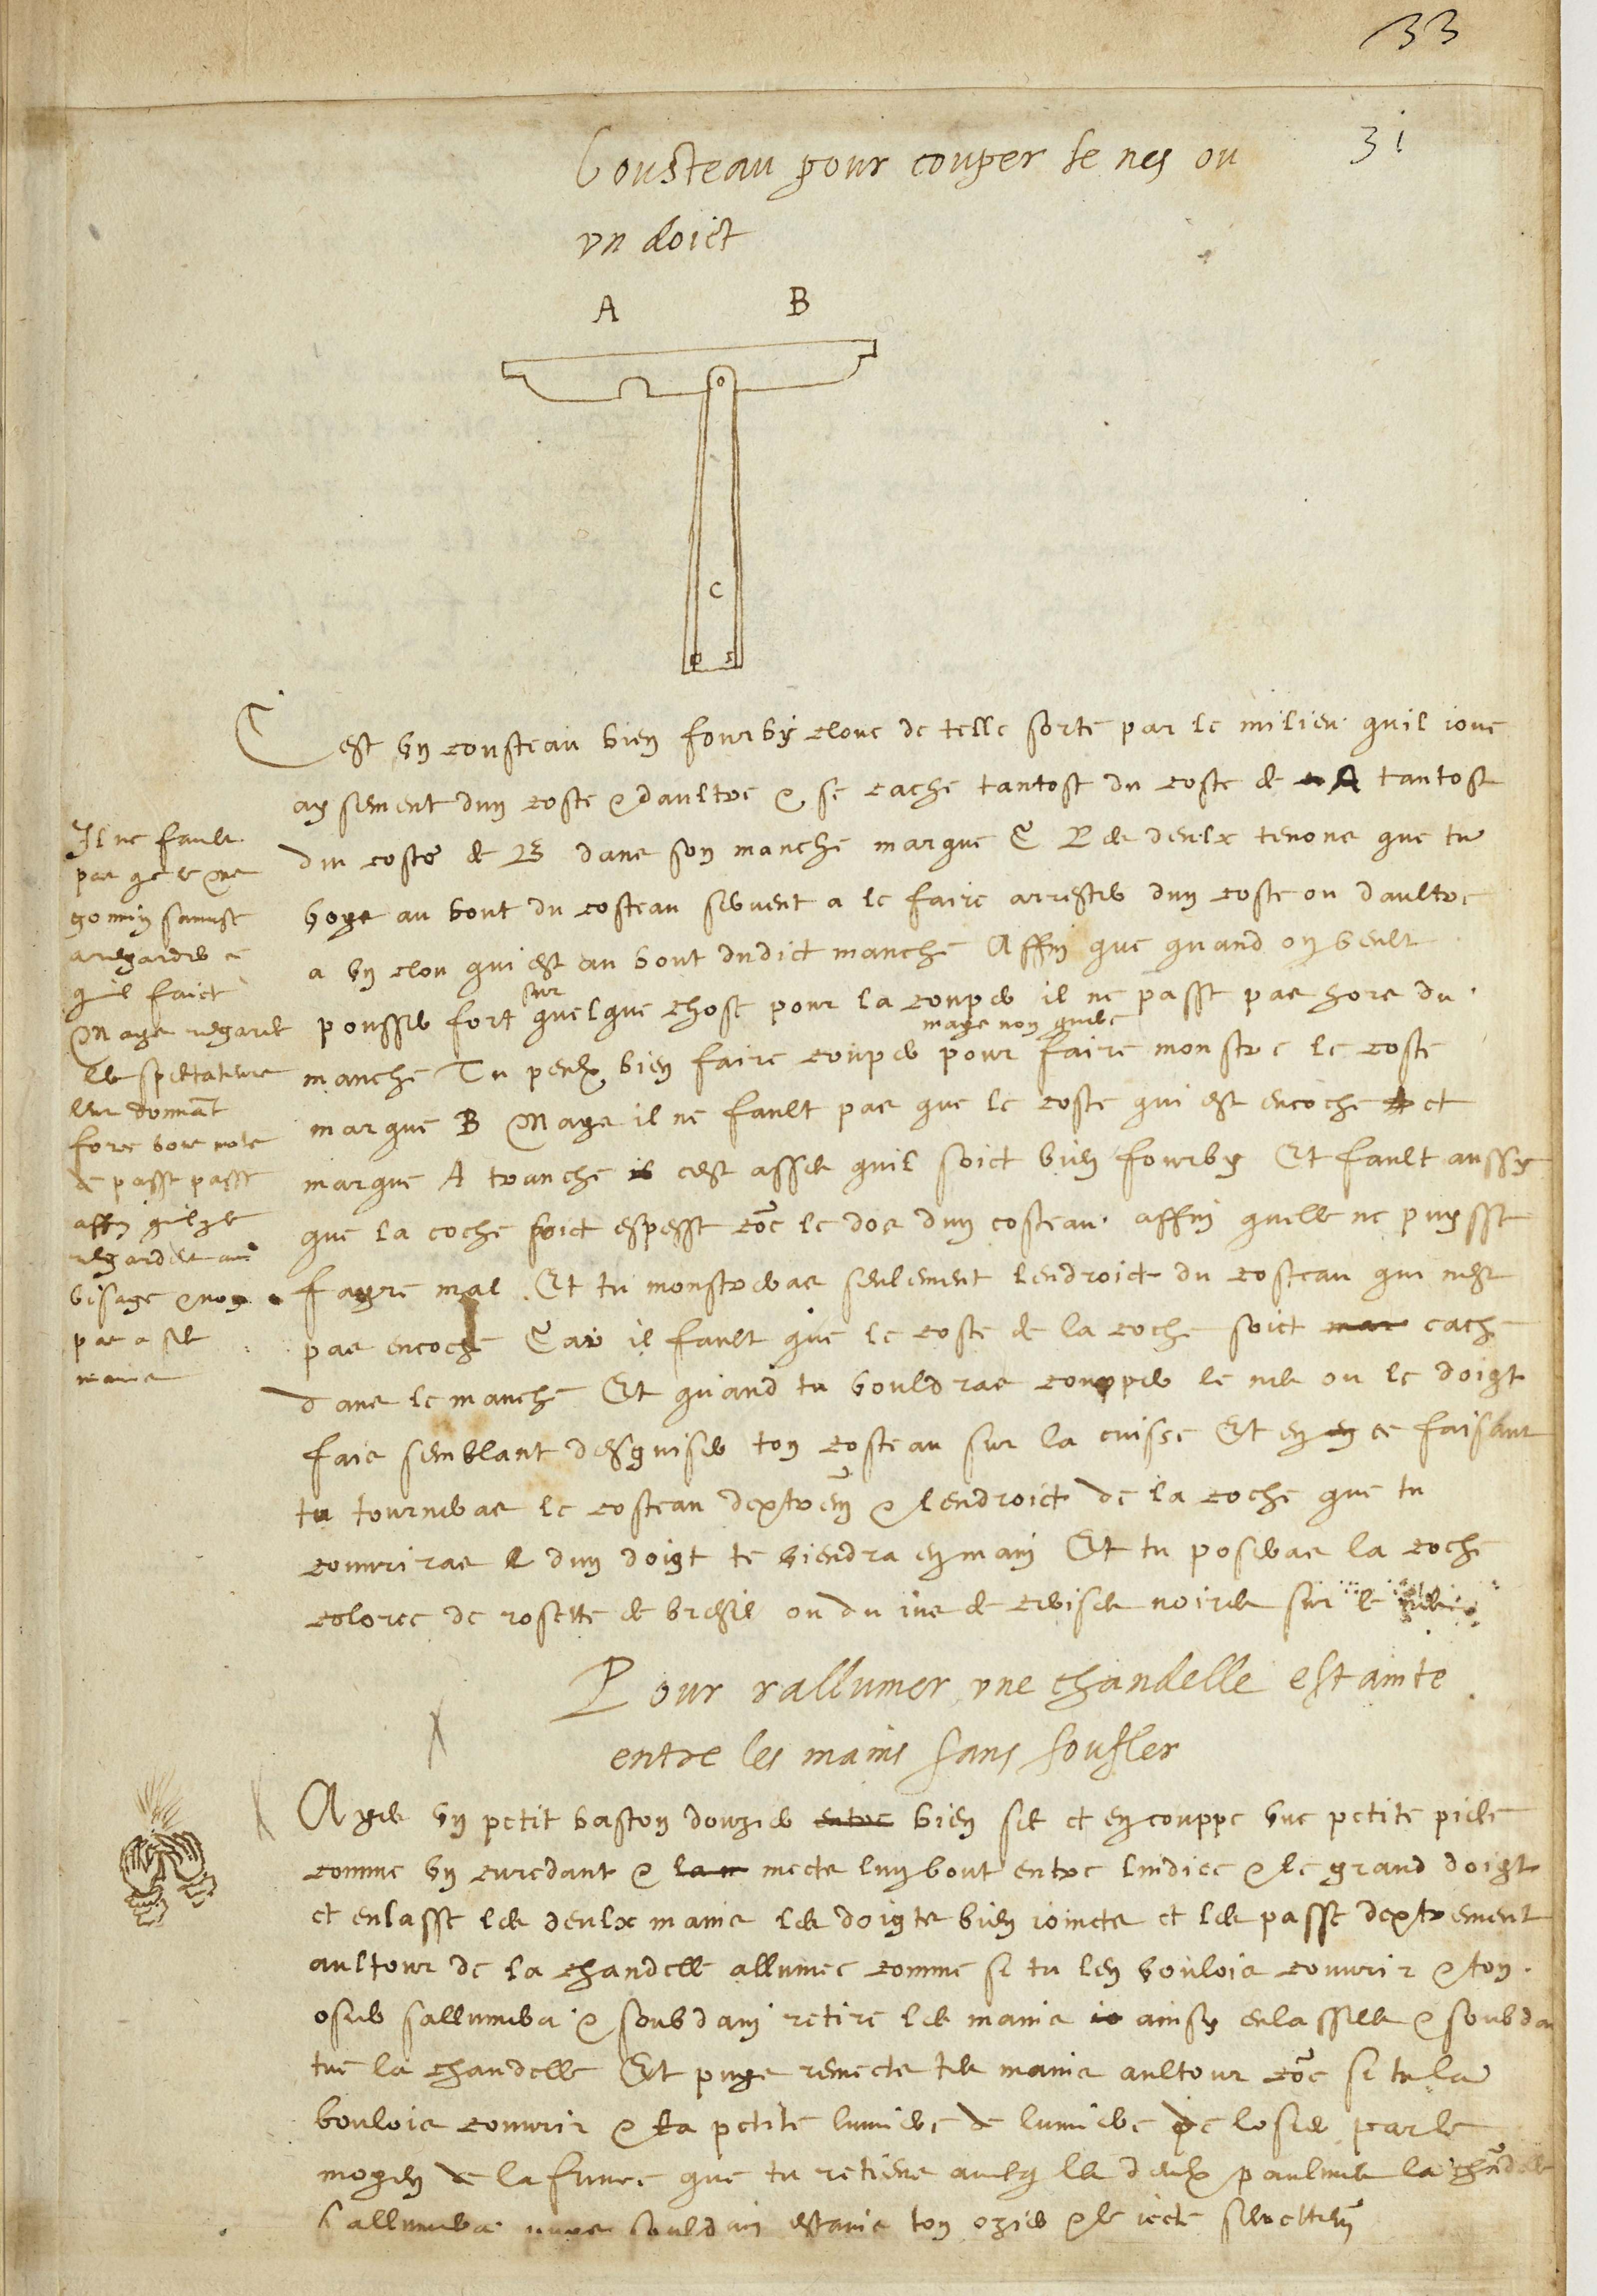 33
31
Cousteau pour couper le nes ou
un doict
A B
C
Cest un cousteau bien fourby cloue de telle sorte par le milieu quil ioue
aysement dun coste & daultre & se cache tantost du coste de A tantost
du coste de B dans son manche marque C Les deulx tenons que tu
voys au bout du costeau servent a le faire arrester dun coste ou daultre
a un clou qui est au bout dudict manche Affin que quand on veult
sur
pousser fort quelque chose pour la couper il ne passe pas hors du
mays non guere
manche Tu peulx bien faire couper pour faire monstre le coste
marque B Mays il ne fault pas que le coste qui est encoche et
marque A tranche il cest asses quil soict bien fourby Et fault aussy
que la coche soict espesse coe le dos dun costeau affin quelle ne puysse
fayre mal Et tu monstreras seulement lendroict du costeau qui nest
pas encoche Car il fault que le coste de la coche soict cache
dans le manche Et quand tu vouldras coupper le nes ou le doigt
fais semblant desguiser ton costeau sur la cuisse Et en en ce faisant
tu tourneras le costeau dextrem & lendroict de la coche que tu
couvriras dun doigt te viendra en main Et tu poseras la coche
coloree de rosette de bresil ou du ius de cerises noires sur le
Il ne fault
pas que les me
gomin samuse
a regarder ce
quil faict
Mays regarde
les spectateurs
leur donnat
force bons mots
de passe passe
affin quilz le
regardent au
visage & non
pas a ses
mains
Pour rallumer une chandelle estainte
entre les mains sans soufler
Ayes un petit baston dozier entre bien sec et en couppe une petite piece
comme un curedant & la m mects lun bout entre lindice & le grand doigt
et enlasse les deulx mains les doigts bien ioincts et les passe dextrement
aultour de la chandelle allumee comme si tu len voulois couvrir & ton
osier sallumera & soubdain retire les mains ainsy enlassees & soubda
tue la chandelle Et puys remects tes mains aultour coe si tu la
voulois couvrir & ta petite lumiere de lumiere de losier par le
moyen de la fumee que tu retiens avecq les deux paulmes la chadelle
sallumera puys souldain estains ton ozier & le iecte secrettem